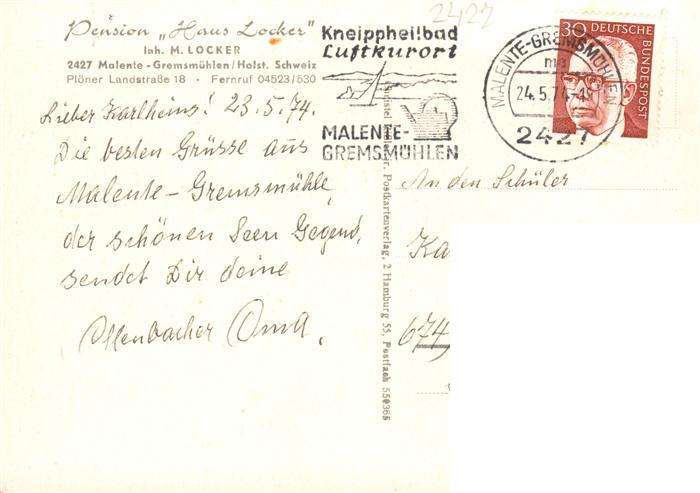 2427
Pension „Haus Locker"
Inh. M. LOCKER
2427 Malente - Gremsmühlen / Holst. Schweiz
Plöner Landstraße 18 · Fernruf 04523/530
Kneippheilbad
Luftkurort
MALENTE-
GREMSMÜHLEN
MALENTE-GREMSMÜHLEN
24.5.74
2427
30 DEUTSCHE BUNDESPOST
Lieber Karlheins! 23.5.74.
Die besten Grüsse aus
Malente-Gremsmühle,
der schönen Seen Gegend,
sendet Dir deine
Offenbacher Oma.
Postkartenverlag, 2 Hamburg 55, Postfach 550365
An den Schüler
Ka
674